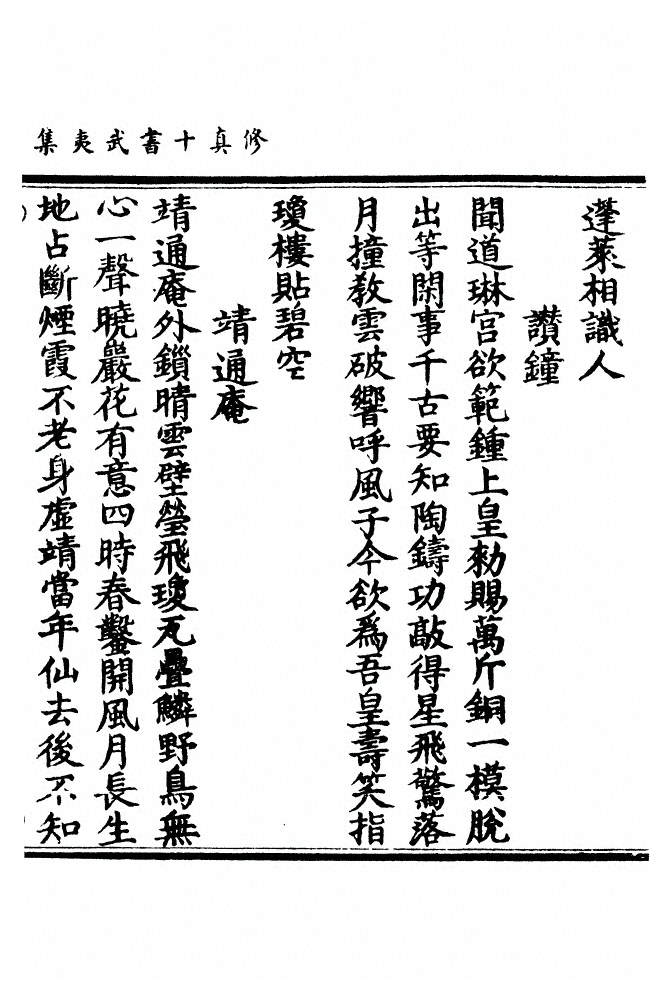 修真十書武夷集
蓬萊相識人
讚鐘
聞道琳宮欲範鍾上皇勑賜萬斤銅一模脫
出等閑事千古要知陶鑄功敲得星飛驚落
月撞教雲破響呼風子今欲爲吾皇壽笑指
瓊樓貼碧空
靖通庵
靖通庵外鎖晴雲壁瑩飛瓊瓦疊鱗野鳥無
心一聲曉巖花有意四時春鑿開風月長生
地占斷煙霞不老身虛靖當年仙去後不知